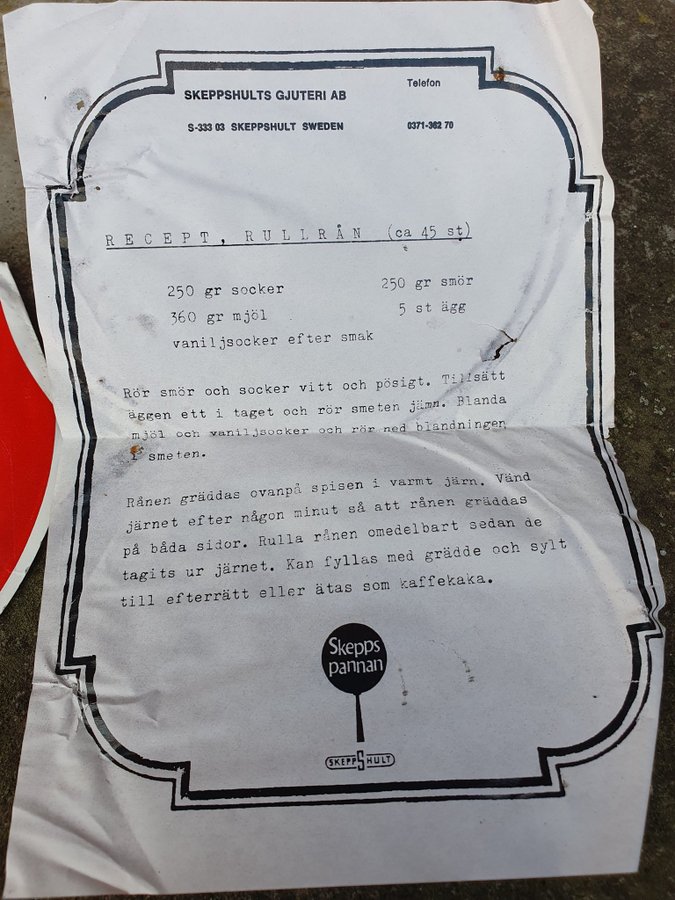 SKEPPSHULTS GJUTERI AB
Telefon
S-333 03 SKEPPSHULT SWEDEN
0371-362 70
RECEPT, RULLRÅN (ca 45 st)
250 gr socker 250 gr smör
360 gr mjöl 5 st ägg
vaniljsocker efter smak
Rör smör och socker vitt och pösigt. Tillsätt
äggen ett i taget och rör smeten jämn. Blanda
mjöl och vaniljsocker och rör ned blandningen
i smeten.
Rånen gräddas ovanpå spisen i varmt järn. Vänd
järnet efter någon minut så att rånen gräddas
på båda sidor. Rulla rånen omedelbart sedan de
tagits ur järnet. Kan fyllas med grädde och sylt
till efterrätt eller ätas som kaffekaka.
Skepps
pannan
SKEPPSHULT